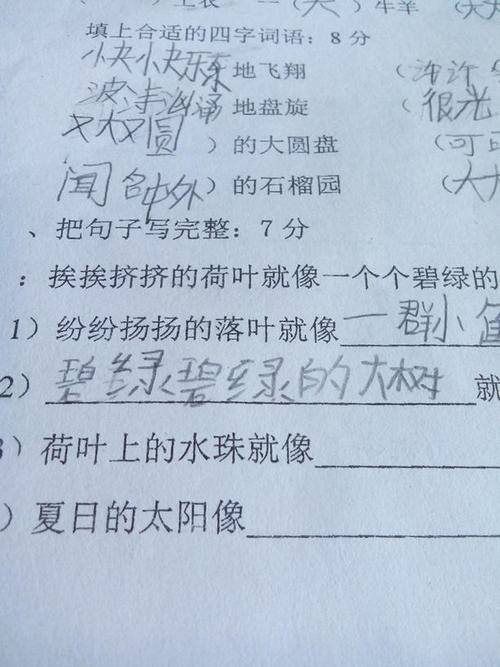 上衣 一（大）牛羊 （大
填上合适的四字词语：8分
小夬小夬乐乐地飞翔 （许许
波涛汹涌地盘旋 （很光
又大又圆）的大圆盘 （可
闻名中外）的石榴园 （大大
、把句子写完整：7分
：挨挨挤挤的荷叶就像一个个碧绿的
1）纷纷扬扬的落叶就像一群小鱼
2）碧绿碧绿的大树就
3）荷叶上的水珠就像
）夏日的太阳像